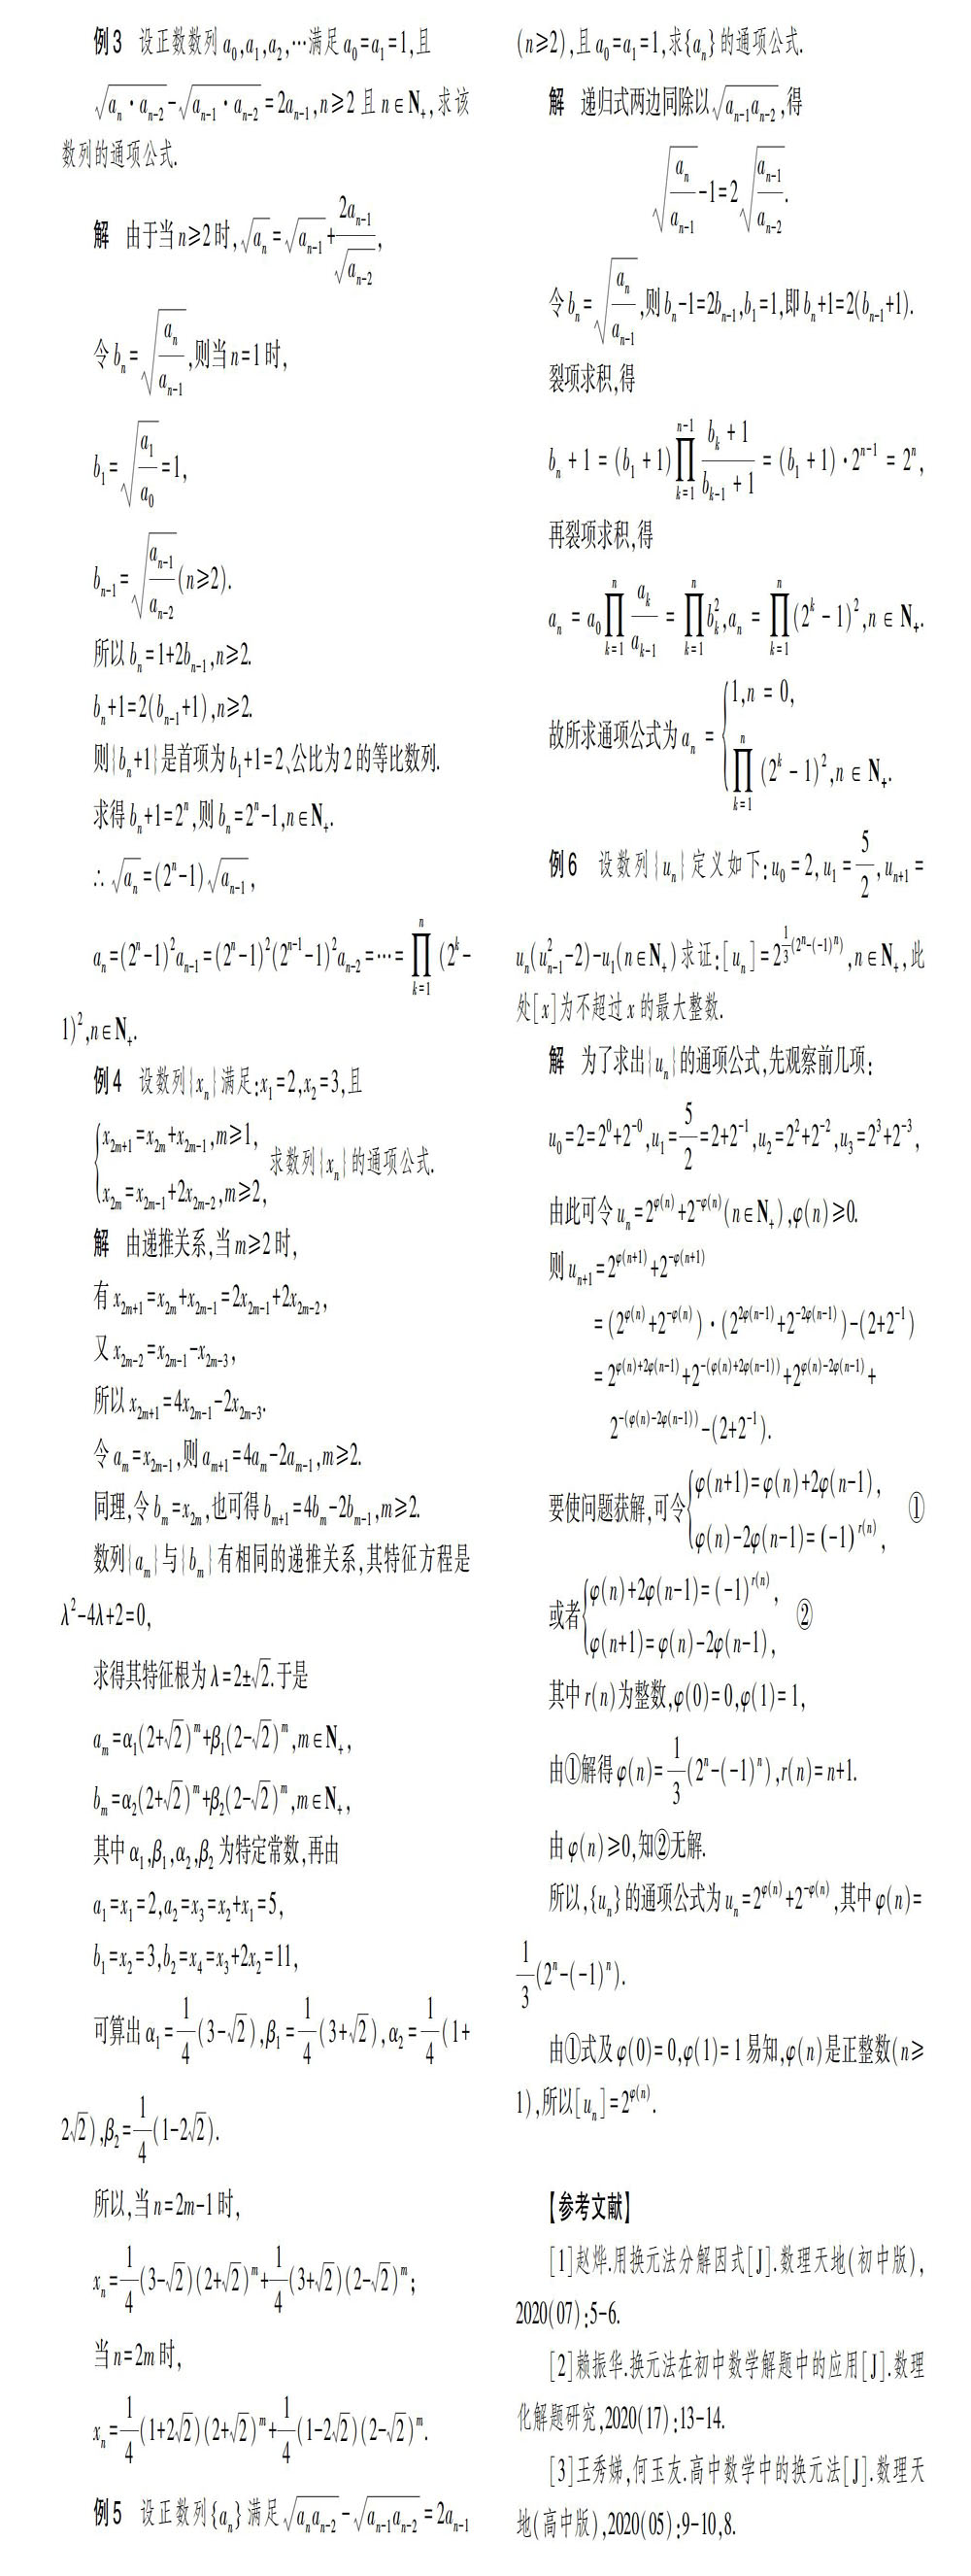 例3 设正数数列 a₀,a₁,a₂,…满足 a₀=a₁=1,且
√(aₙ·aₙ₋₂)-√(aₙ₋₁·aₙ₋₂)=2aₙ₋₁,n≥2 且 n∈N₊,求该
数列的通项公式.
解 由于当 n≥2 时,√aₙ=√aₙ₋₁+2aₙ₋₁/√aₙ₋₂,
令 bₙ=√(aₙ/aₙ₋₁),则当 n=1 时,
b₁=√(a₁/a₀)=1,
bₙ₋₁=√(aₙ₋₁/aₙ₋₂)(n≥2).
所以 bₙ=1+2bₙ₋₁,n≥2.
bₙ+1=2(bₙ₋₁+1),n≥2.
则{bₙ+1}是首项为 b₁+1=2、公比为 2 的等比数列.
求得 bₙ+1=2ⁿ,则 bₙ=2ⁿ-1,n∈N₊.
∴ √aₙ=(2ⁿ-1)√aₙ₋₁,
aₙ=(2ⁿ-1)²aₙ₋₁=(2ⁿ-1)²(2ⁿ⁻¹-1)²aₙ₋₂=…=∏_{k=1}^{n}(2ᵏ-
1)²,n∈N₊.
例4 设数列{xₙ}满足:x₁=2,x₂=3,且
{x_{2m+1}=x_{2m}+x_{2m-1},m≥1,
x_{2m}=x_{2m-1}+2x_{2m-2},m≥2, 求数列{xₙ}的通项公式.
解 由递推关系,当 m≥2 时,
有 x_{2m+1}=x_{2m}+x_{2m-1}=2x_{2m-1}+2x_{2m-2},
又 x_{2m-2}=x_{2m-1}-x_{2m-3},
所以 x_{2m+1}=4x_{2m-1}-2x_{2m-3}.
令 a_m=x_{2m-1},则 a_{m+1}=4a_m-2a_{m-1},m≥2.
同理,令 b_m=x_{2m},也可得 b_{m+1}=4b_m-2b_{m-1},m≥2.
数列{a_m}与{b_m}有相同的递推关系,其特征方程是
λ²-4λ+2=0,
求得其特征根为 λ=2±√2.于是
a_m=α₁(2+√2)^m+β₁(2-√2)^m,m∈N₊,
b_m=α₂(2+√2)^m+β₂(2-√2)^m,m∈N₊,
其中 α₁,β₁,α₂,β₂ 为特定常数,再由
a₁=x₁=2,a₂=x₃=x₂+x₁=5,
b₁=x₂=3,b₂=x₄=x₃+2x₂=11,
可算出 α₁=1/4(3-√2),β₁=1/4(3+√2),α₂=1/4(1+
2√2),β₂=1/4(1-2√2).
所以,当 n=2m-1 时,
xₙ=1/4(3-√2)(2+√2)^m+1/4(3+√2)(2-√2)^m;
当 n=2m 时,
xₙ=1/4(1+2√2)(2+√2)^m+1/4(1-2√2)(2-√2)^m.
例5 设正数数列{aₙ}满足√(aₙaₙ₋₂)-√(aₙ₋₁aₙ₋₂)=2aₙ₋₁
(n≥2),且 a₀=a₁=1,求{aₙ}的通项公式.
解 递归式两边同除以√(aₙ₋₁aₙ₋₂),得
√(aₙ/aₙ₋₁)-1=2√(aₙ₋₁/aₙ₋₂).
令 bₙ=√(aₙ/aₙ₋₁),则 bₙ-1=2bₙ₋₁,b₁=1,即 bₙ+1=2(bₙ₋₁+1).
裂项求积,得
bₙ+1=(b₁+1)∏_{k=1}^{n-1}(b_k+1)/(b_{k-1}+1)=(b₁+1)·2ⁿ⁻¹=2ⁿ,
再裂项求积,得
aₙ=a₀∏_{k=1}^{n}a_k/a_{k-1}=∏_{k=1}^{n}b_k²,aₙ=∏_{k=1}^{n}(2ᵏ-1)²,n∈N₊.
故所求通项公式为 aₙ={1,n=0,
∏_{k=1}^{n}(2ᵏ-1)²,n∈N₊.
例6 设数列{uₙ}定义如下:u₀=2,u₁=5/2,uₙ₊₁=
uₙ(u²ₙ₋₁-2)-u₁(n∈N₊)求证:[uₙ]=2^{1/3(2ⁿ-(-1)ⁿ)},n∈N₊,此
处[x]为不超过 x 的最大整数.
解 为了求出{uₙ}的通项公式,先观察前几项:
u₀=2=2⁰+2⁻⁰,u₁=5/2=2+2⁻¹,u₂=2²+2⁻²,u₃=2³+2⁻³,
由此可令 uₙ=2^{φ(n)}+2^{-φ(n)}(n∈N₊),φ(n)≥0.
则 uₙ₊₁=2^{φ(n+1)}+2^{-φ(n+1)}
=(2^{φ(n)}+2^{-φ(n)})·(2^{2φ(n-1)}+2^{-2φ(n-1)})-(2+2⁻¹)
=2^{φ(n)+2φ(n-1)}+2^{-(φ(n)+2φ(n-1))}+2^{φ(n)-2φ(n-1)}+
2^{-(φ(n)-2φ(n-1))}-(2+2⁻¹).
要使问题获解,可令{φ(n+1)=φ(n)+2φ(n-1),
φ(n)-2φ(n-1)=(-1)^{r(n)}, ①
或者{φ(n)+2φ(n-1)=(-1)^{r(n)},
φ(n+1)=φ(n)-2φ(n-1), ②
其中 r(n)为整数,φ(0)=0,φ(1)=1,
由①解得 φ(n)=1/3(2ⁿ-(-1)ⁿ),r(n)=n+1.
由 φ(n)≥0,知②无解.
所以,{uₙ}的通项公式为 uₙ=2^{φ(n)}+2^{-φ(n)},其中 φ(n)=
1/3(2ⁿ-(-1)ⁿ).
由①式及 φ(0)=0,φ(1)=1 易知,φ(n)是正整数(n≥
1),所以[uₙ]=2^{φ(n)}.
【参考文献】
[1]赵烨.用换元法分解因式[J].数理天地(初中版),
2020(07):5-6.
[2]赖振华.换元法在初中数学解题中的应用[J].数理
化解题研究,2020(17):13-14.
[3]王秀娣,何玉友.高中数学中的换元法[J].数理天
地(高中版),2020(05):9-10,8.